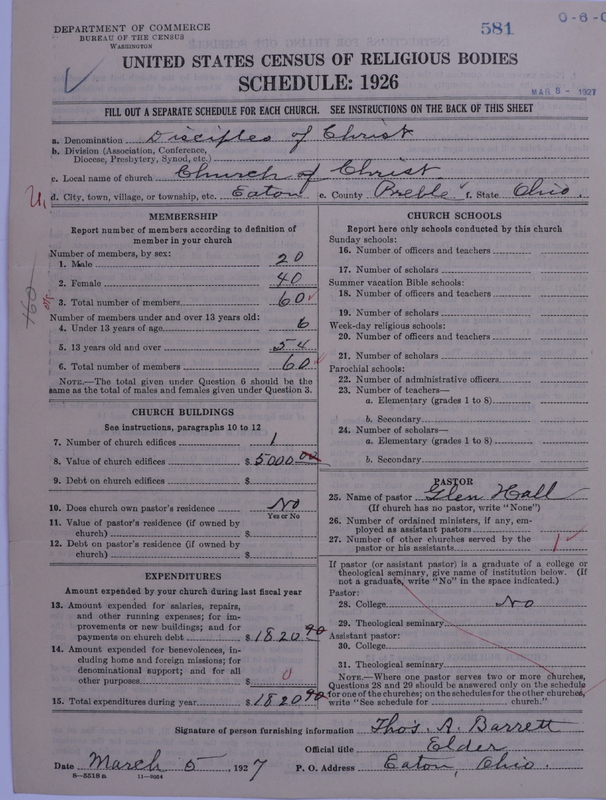 DEPARTMENT OF COMMERCE
BUREAU OF THE CENSUS
WASHINGTON
581
UNITED STATES CENSUS OF RELIGIOUS BODIES
SCHEDULE: 1926
MAR 8 - 1927
FILL OUT A SEPARATE SCHEDULE FOR EACH CHURCH. SEE INSTRUCTIONS ON THE BACK OF THIS SHEET
a. Denomination Disciples of Christ
b. Division (Association, Conference, Diocese, Presbytery, Synod, etc.)
c. Local name of church Church of Christ
d. City, town, village, or township, etc. Eaton e. County Preble f. State Ohio.
MEMBERSHIP
Report number of members according to definition of member in your church
Number of members, by sex:
1. Male 20
2. Female 40
3. Total number of members 60
Number of members under and over 13 years old:
4. Under 13 years of age 6
5. 13 years old and over 54
6. Total number of members 60
NOTE.—The total given under Question 6 should be the same as the total of males and females given under Question 3.
CHURCH BUILDINGS
See instructions, paragraphs 10 to 12
7. Number of church edifices 1
8. Value of church edifices $ 5000.00
9. Debt on church edifices $
10. Does church own pastor's residence No
Yes or No
11. Value of pastor's residence (if owned by church) $
12. Debt on pastor's residence (if owned by church) $
EXPENDITURES
Amount expended by your church during last fiscal year
13. Amount expended for salaries, repairs, and other running expenses; for improvements or new buildings; and for payments on church debt $ 1820.90
14. Amount expended for benevolences, including home and foreign missions; for denominational support; and for all other purposes $ 0
15. Total expenditures during year $ 1820.90
CHURCH SCHOOLS
Report here only schools conducted by this church
Sunday schools:
16. Number of officers and teachers
17. Number of scholars
Summer vacation Bible schools:
18. Number of officers and teachers
19. Number of scholars
Week-day religious schools:
20. Number of officers and teachers
21. Number of scholars
Parochial schools:
22. Number of administrative officers
23. Number of teachers—
a. Elementary (grades 1 to 8)
b. Secondary
24. Number of scholars—
a. Elementary (grades 1 to 8)
b. Secondary
PASTOR
25. Name of pastor Glen Hall
(If church has no pastor, write "None")
26. Number of ordained ministers, if any, employed as assistant pastors
27. Number of other churches served by the pastor or his assistants 1
If pastor (or assistant pastor) is a graduate of a college or theological seminary, give name of institution below. (If not a graduate, write "No" in the space indicated.)
Pastor:
28. College No
29. Theological seminary
Assistant pastor:
30. College
31. Theological seminary
NOTE.—Where one pastor serves two or more churches, Questions 28 and 29 should be answered only on the schedule for one of the churches; on the schedules for the other churches, write "See schedule for church."
Signature of person furnishing information Thos. A. Barrett
Official title Elder
Date March 5, 1927 P. O. Address Eaton, Ohio.
8—5518a 11—9084